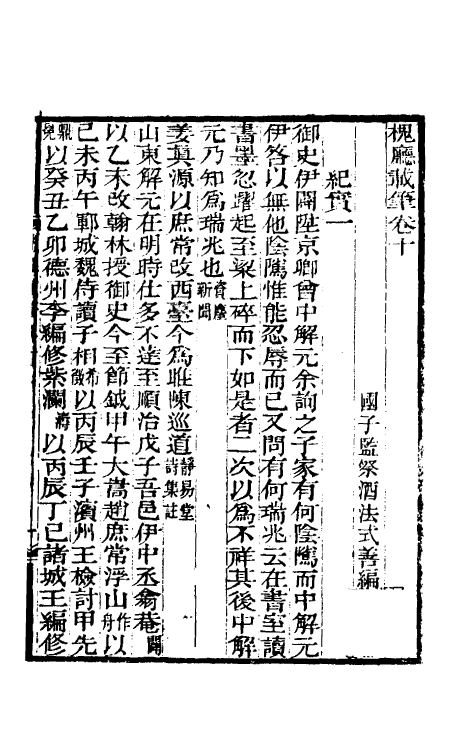 槐廳載筆卷十
國子監祭酒法式善編
紀實一
御史伊闢陞京卿曾中解元余詢之子家有何陰隲而中解元
伊答以無他陰隲惟能忍辱而已又問有何瑞兆云在書室讀
書墨忽躍起至梁上碎而下如是者二次以為不祥其後中解
元乃知為瑞兆也
姜真源以庶常改西臺今為睢陳巡道靜易堂詩集註
山東解元在明時仕多不達至順治戊子吾邑伊中丞翕菴闢
以乙未改翰林授御史今至節鉞甲午大嵩趙庶常浮山作舟以
己未丙午鄆城魏侍讀子相希徵以丙辰壬子濱州王檢討甲先
鼎冕以癸丑乙卯德州李編修紫瀾濤以丙辰丁巳諸城王編修